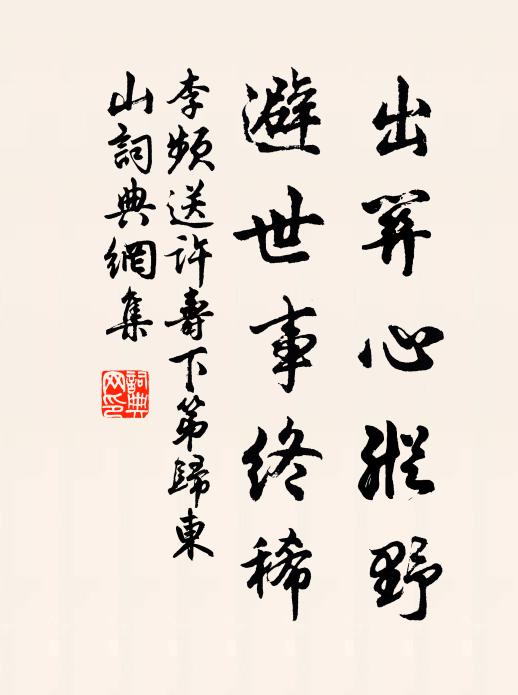 出關心縱野
避世事終稀
李頻送許壽下第歸東
山詞典網集
詞典
网印